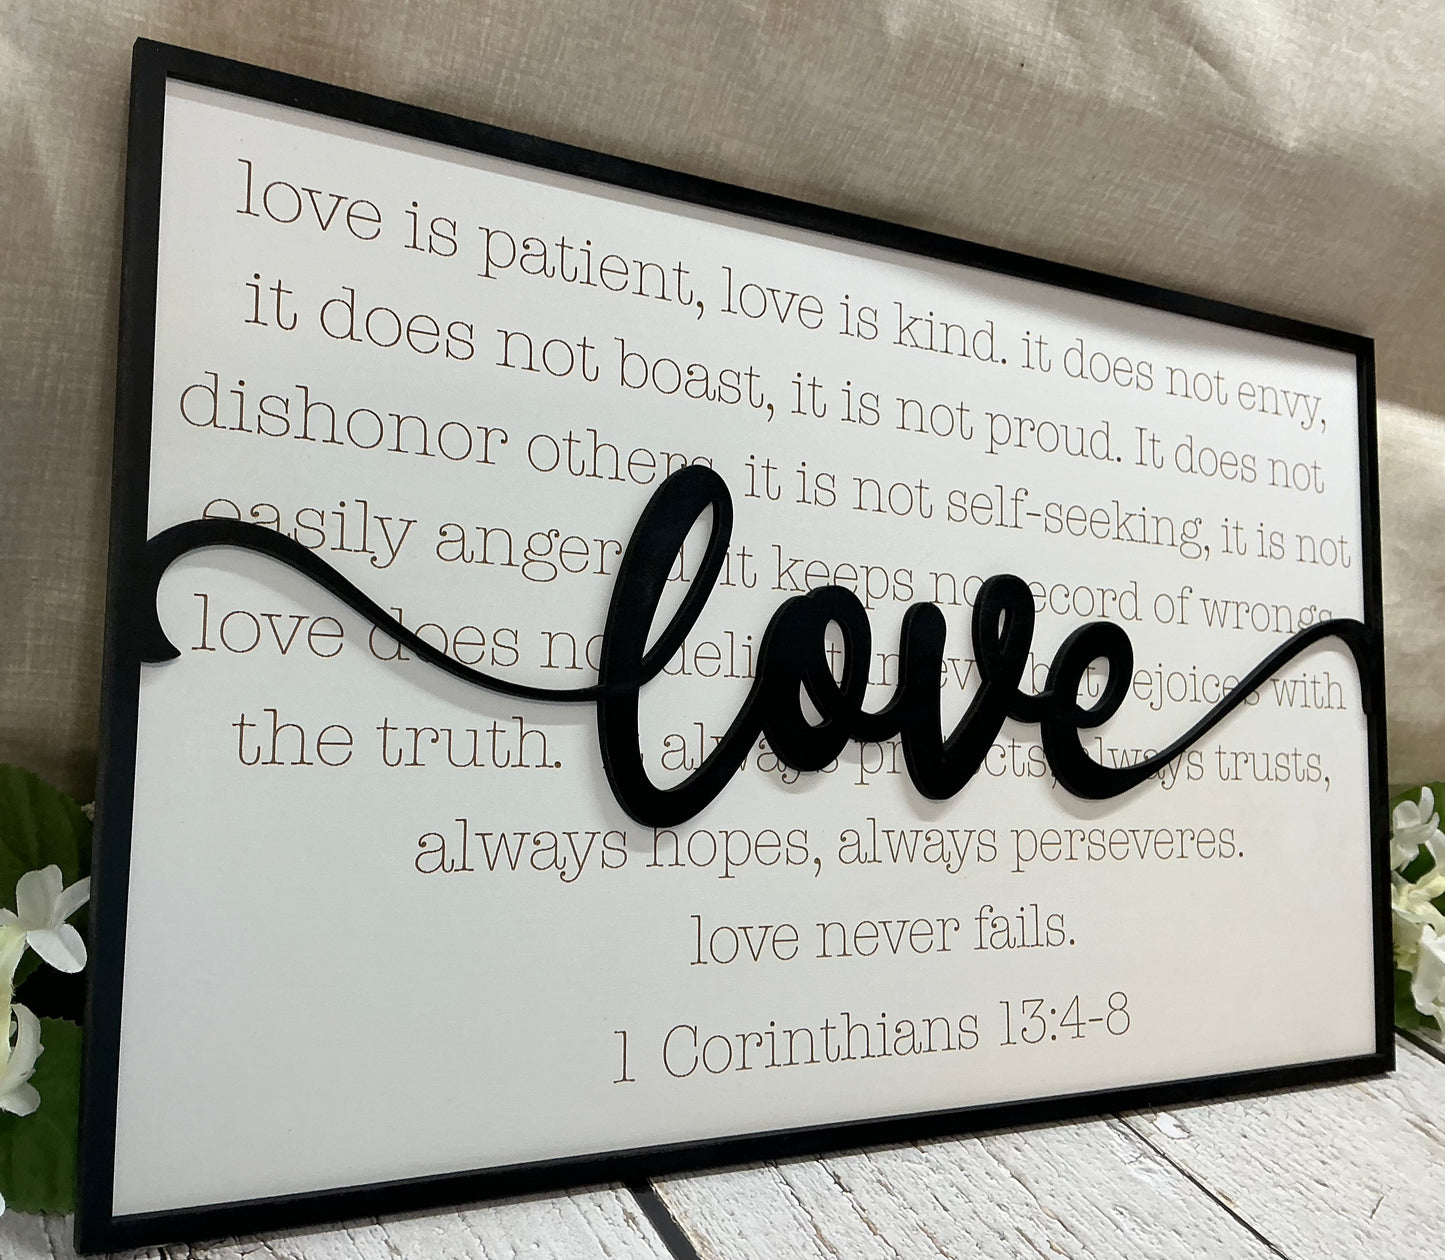 love is patient, love is kind. it does not envy,
it does not boast, it is not proud. It does not
dishonor others, it is not self-seeking, it is not
easily angered it keeps no record of wrongs
love does not delight in evil but rejoices with
the truth. It always protects, always trusts,
love
always hopes, always perseveres.
love never fails.
1 Corinthians 13:4-8